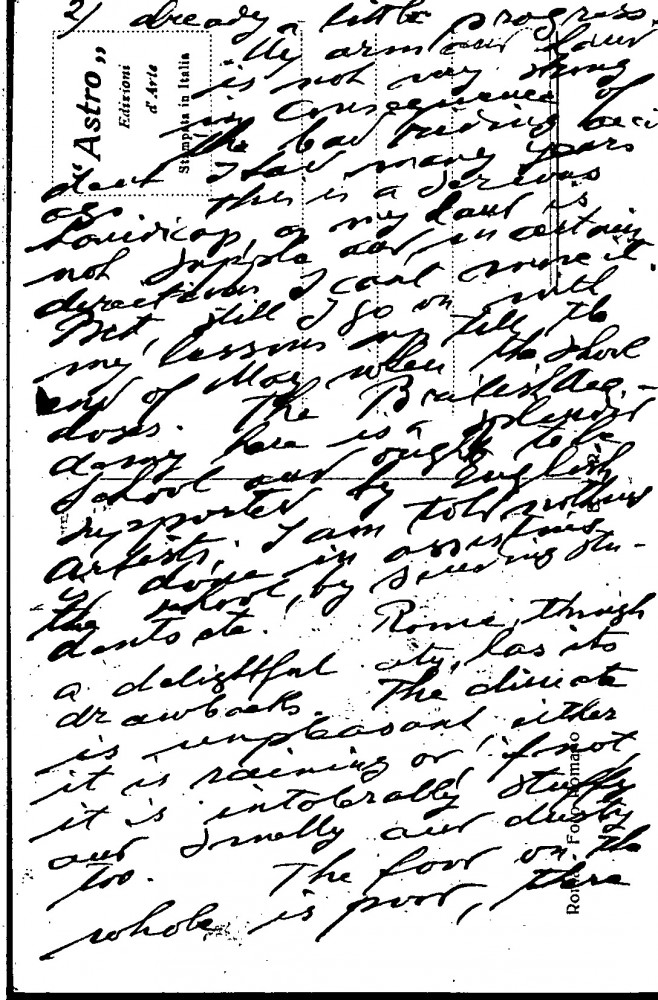 2) already a little progress.
My arm and hand
is not very strong
in consequence of
the bad riding acci
dent I had many years
ago. This is a serious
handicap, as my hand is
not supple and, in certain
directions I can't move it.
But, still I go on with
my lessons up till the
end of May when the school
closes. The British Aca-
demy here is a splendid
school and ought to be
supported by English
artists. I am told nothing
is done in assisting
the school, by sending stu-
dents etc. Rome, though
a delightful city, has its
drawbacks. The climate
is unpleasant either
it is raining or, if not,
it is intolerably stuffy
and smelly and dusty
too. The food on the
whole is poor, there
"Astro"
Edizioni
d'Arte
Stampata in Italia
Roma Foro Romano